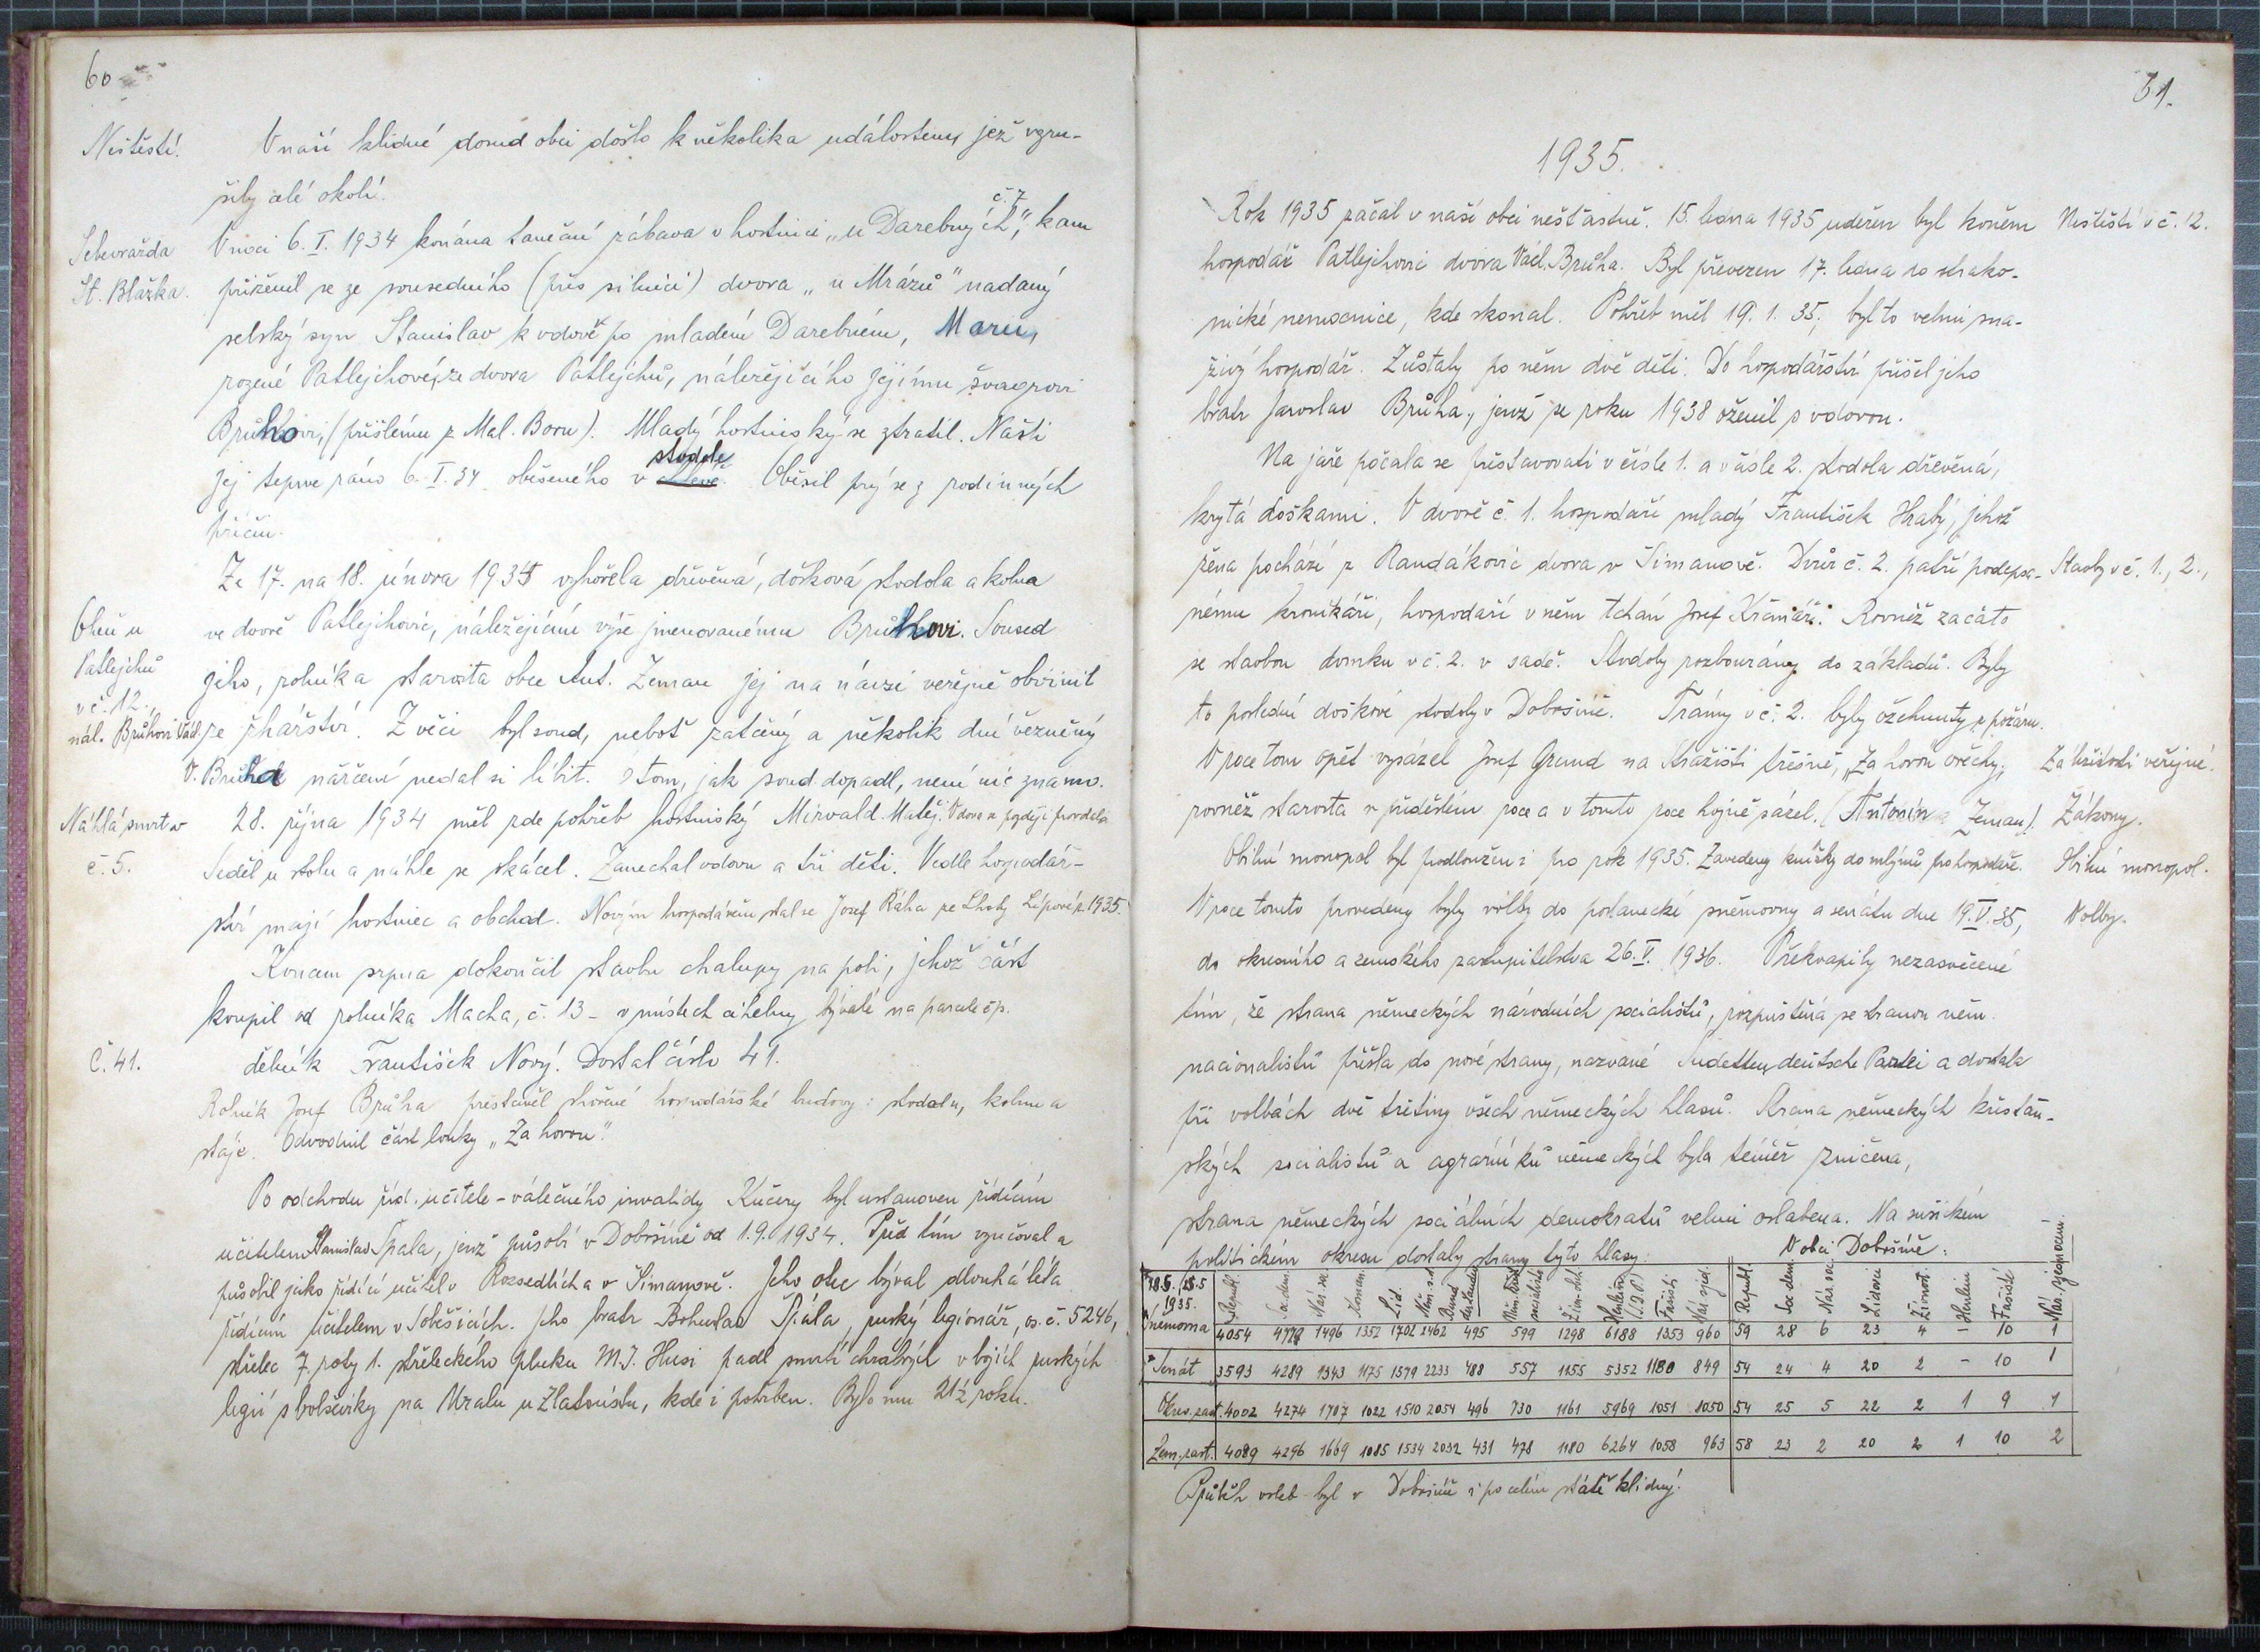 60
Neštěstí. V naší klidné dosud obci došlo k několika událostem, jež vzru-
šily celé okolí.
Sebevražda V noci 6. I. 1934 konána taneční zábava v hostinci „u Darebných“, č. 7 kam
St. Blažka. přiženil se ze sousedního (přes silnici) dvora „u Mrázů“ nadaný
selský syn Stanislav k vdově po mladém Darebném, Marii,
rozené Patlejchové, ze dvora Patlejchů, náležejícího jejímu švagrovi
Brůhovi, (přišlému z Mal. Boru). Mladý hostinský se ztratil. Našli
jej teprve ráno 6. I. 34 oběšeného v stodole. Oběsil prý se z rodinných
příčin.
Ze 17. na 18. února 1934 vyhořela dřevěná, došková stodola a kolna
Oheň u ve dvoře Patlejchovic, náležejícímu výše jmenovanému Brůhovi. Soused
Patlejchů jeho, rolník a starosta obce Ant. Zeman jej na návsi veřejně obvinil
v č. 12.
nál. Brůhovi Václ. ze žhářství. Z věci byl soud, neboť zatčený a několik dní vězněný
V. Brůha nařčení nedal si líbit. O tom, jak soud dopadl, není nic známo.
Náhlá smrt v 28. října 1934 měl zde pohřeb hostinský Mirvald Matěj. Vdova se později provdala
č. 5. Seděl u stolu a náhle se skácel. Zanechal vdovu a tři děti. Vedle hospodář-
ství mají hostinec a obchod. Novým hospodářem stal se Josef Ráha ze Lhoty Lípové r. 1935.
Koncem srpna dokončil stavbu chalupy na poli, jehož část
koupil od rolníka Macha, č. 13 - v místech cihelny bývalé na parcele čp.
Č. 41. dělník František Nový. Dostal číslo 41.
Rolník Josef Brůha přestavěl shořené hospodářské budovy: stodolu, kolnu a
stáje. Odvodnil část louky „Za horou“.
Po odchodu říd. učitele - válečného invalidy Kučery byl ustanoven řídícím
učitelem Stanislav Špala, jenž působí v Dobršíně od 1. 9. 1934. Před tím vyučoval a
působil jako řídící učitel v Rozsedlích a v Šimanově. Jeho otec býval dlouhá léta
řídícím učitelem v Soběšicích. Jeho bratr Bohuslav Špála, ruský legionář, os. č. 5246,
střelec 7. roty 1. střeleckého pluku M. J. Husi padl smrtí chrabrých v bojích ruských
legií s bolševiky na Uralu u Zlatoústu, kde i pohřben. Bylo mu 21½ roku.
61.
1935.
Rok 1935 začal v naší obci nešťastně. 15. ledna 1935 udeřen byl koněm Neštěstí v č. 12.
hospodář Patlejchovic dvora Václ. Brůha. Byl převezen 17. ledna do strako-
nické nemocnice, kde skonal. Pohřeb měl 19. 1. 35, byl to velmi sna-
živý hospodář. Zůstaly po něm dvě děti. Do hospodářství přišel jeho
bratr Jaroslav Brůha, jenž se roku 1938 oženil s vdovou.
Na jaře počala se přestavovati v čísle 1. a v čísle 2. stodola dřevěná,
krytá doškami. V dvoře č. 1. hospodaří mladý František Hrabý, jehož
žena pochází z Randákovic dvora v Šimanově. Dvůr č. 2. patří podepsa- Stavby v č. 1., 2.,
nému kronikáři, hospodaří v něm tchán Josef Krčmář. Rovněž začato
se stavbou domku v č. 2. v sadě. Stodoly rozbourány do základů. Byly
to poslední doškové stodoly v Dobršíně. Trámy v č. 2. byly ožehnuty z požáru.
V roce tom opět vysázel Josef Grund na Strážišti třešně, „Za horou ořechy, Záležitosti veřejné.
rovněž starosta v předešlém roce a v tomto roce hojně sázel. (Antonín Zeman). Zákony.
Obilní monopol byl prodloužen i pro rok 1935. Zavedeny knížky do mlýnů pro hospodáře. Obilní monopol.
V roce tomto provedeny byly volby do poslanecké sněmovny a senátu dne 19. V. 35, Volby.
do okresního a zemského zastupitelstva 26. V. 1936. Překvapily nezasvěcené
tím, že strana německých národních socialistů, rozpuštěná se stranou něm.
nacionalistů přešla do nové strany, nazvané Sudetendeutsche Partei a dostala
při volbách dvě třetiny všech německých hlasů. Strana německých křesťan-
ských socialistů a agrárníků německých byla téměř zničena,
strana německých sociálních demokratů velmi oslabena. Na sušickém
politickém okresu dostaly strany tyto hlasy: V obci Dobršíně:
1935. Republ. Soc. dem. Nár. soc. Komun. Lid. Něm. s. d. Bund der Landw. Něm. křesť. socialisté Živn. obch. Henlein (S.D.P.) Fašisti Nár. sjed. Republ. Soc. dem. Nár. soc. Lidovci Živnost. Henlein Fašisté Nár. sjednocení.
Sněmovna 4054 4778 1496 1352 1702 2462 495 599 1298 6188 1353 960 59 28 6 23 4 - 10 1
Senát 3593 4289 1343 1175 1579 2233 488 557 1255 5352 1180 849 54 24 4 20 2 - 10 1
Okres. zast. 4002 4274 1707 1022 1510 2054 496 730 1161 5969 1051 1050 54 25 5 22 2 1 9 1
Zem. zast. 4089 4296 1669 1085 1534 2032 431 478 1180 6264 1058 963 58 23 2 20 2 1 10 2
Průběh voleb byl v Dobršíně i po celém státě klidný.